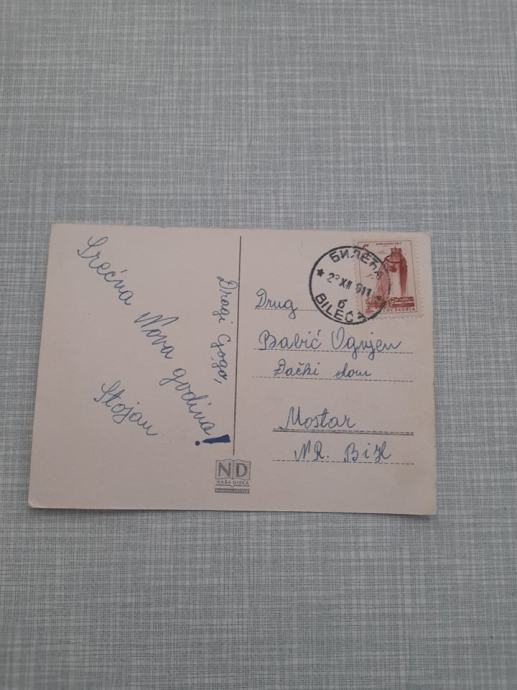 Dragi Gogo,
Srećna Nova godina!
Stojan
БИЛЕЋА
XII
6
BILEĆA
Drug
Babić Ognjen
Đački dom
Mostar
NR. BiH
ND
NAŠA DJECA